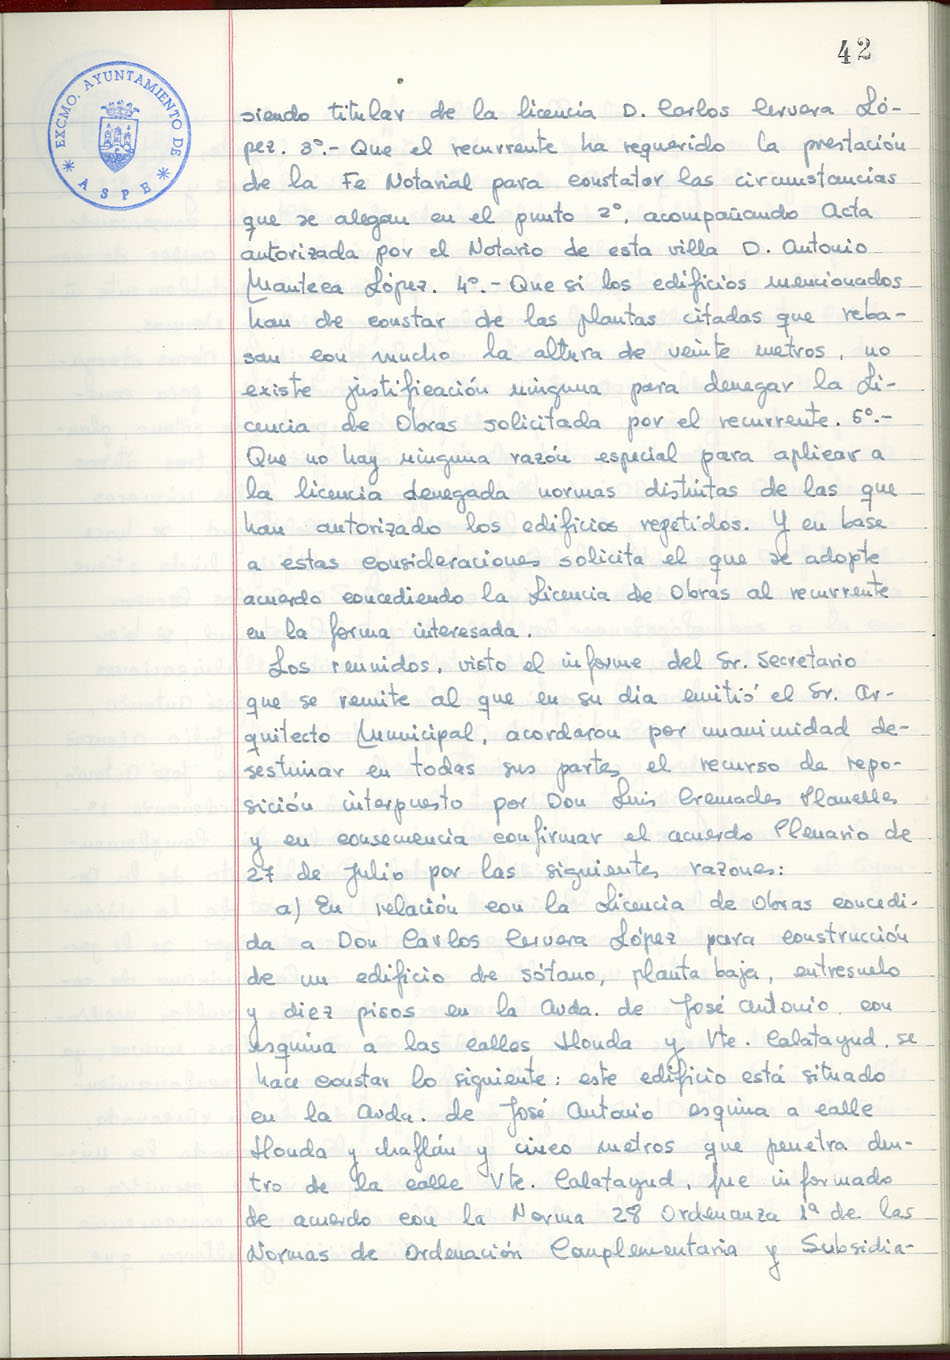 42
EXCMO. AYUNTAMIENTO DE
* ASPE *
siendo titular de la licencia D. Carlos Cervera Ló-
pez. 3º.- Que el recurrente ha requerido la prestación
de la Fe Notarial para constatar las circunstancias
que se alegan en el punto 2º, acompañando Acta
autorizada por el Notario de esta villa D. Antonio
Manteca López. 4º.- Que si los edificios mencionados
han de constar de las plantas citadas que reba-
san con mucho la altura de veinte metros, no
existe justificación ninguna para denegar la Li-
cencia de Obras solicitada por el recurrente. 5º.-
Que no hay ninguna razón especial para aplicar a
la licencia denegada normas distintas de las que
han autorizado los edificios repetidos. Y en base
a estas consideraciones solicita el que se adopte
acuerdo concediendo la Licencia de Obras al recurrente
en la forma interesada.
Los reunidos, visto el informe del Sr. Secretario
que se remite al que en su dia emitió el Sr. Ar-
quitecto Municipal, acordaron por unanimidad de-
sestimar en todas sus partes el recurso de repo-
sición interpuesto por Don Luis Cremades Planelles
y en consecuencia confirmar el acuerdo Plenario de
27 de Julio por las siguientes razones:
a) En relación con la Licencia de Obras concedi-
da a Don Carlos Cervera López para construcción
de un edificio de sótano, planta baja, entresuelo
y diez pisos en la Avda. de José Antonio, con
esquina a las calles Honda y Vte. Calatayud, se
hace constar lo siguiente: este edificio está situado
en la Avda. de José Antonio esquina a calle
Honda y chaflán y cinco metros que penetra den-
tro de la calle Vte. Calatayud, fue informado
de acuerdo con la Norma 28 Ordenanza 1ª de las
Normas de Ordenación Complementaria y Subsidia-